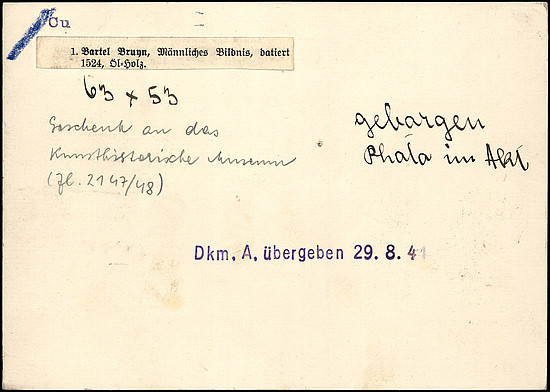 Cu
1. Bartel Bruyn, Männliches Bildnis, datiert
1524, Öl-Holz.
63 x 53
Geschenk an das
Kunsthistorische Museum
(Zl. 2147/48)
geborgen
Photo im Akt
Dkm. A. übergeben 29. 8. 41